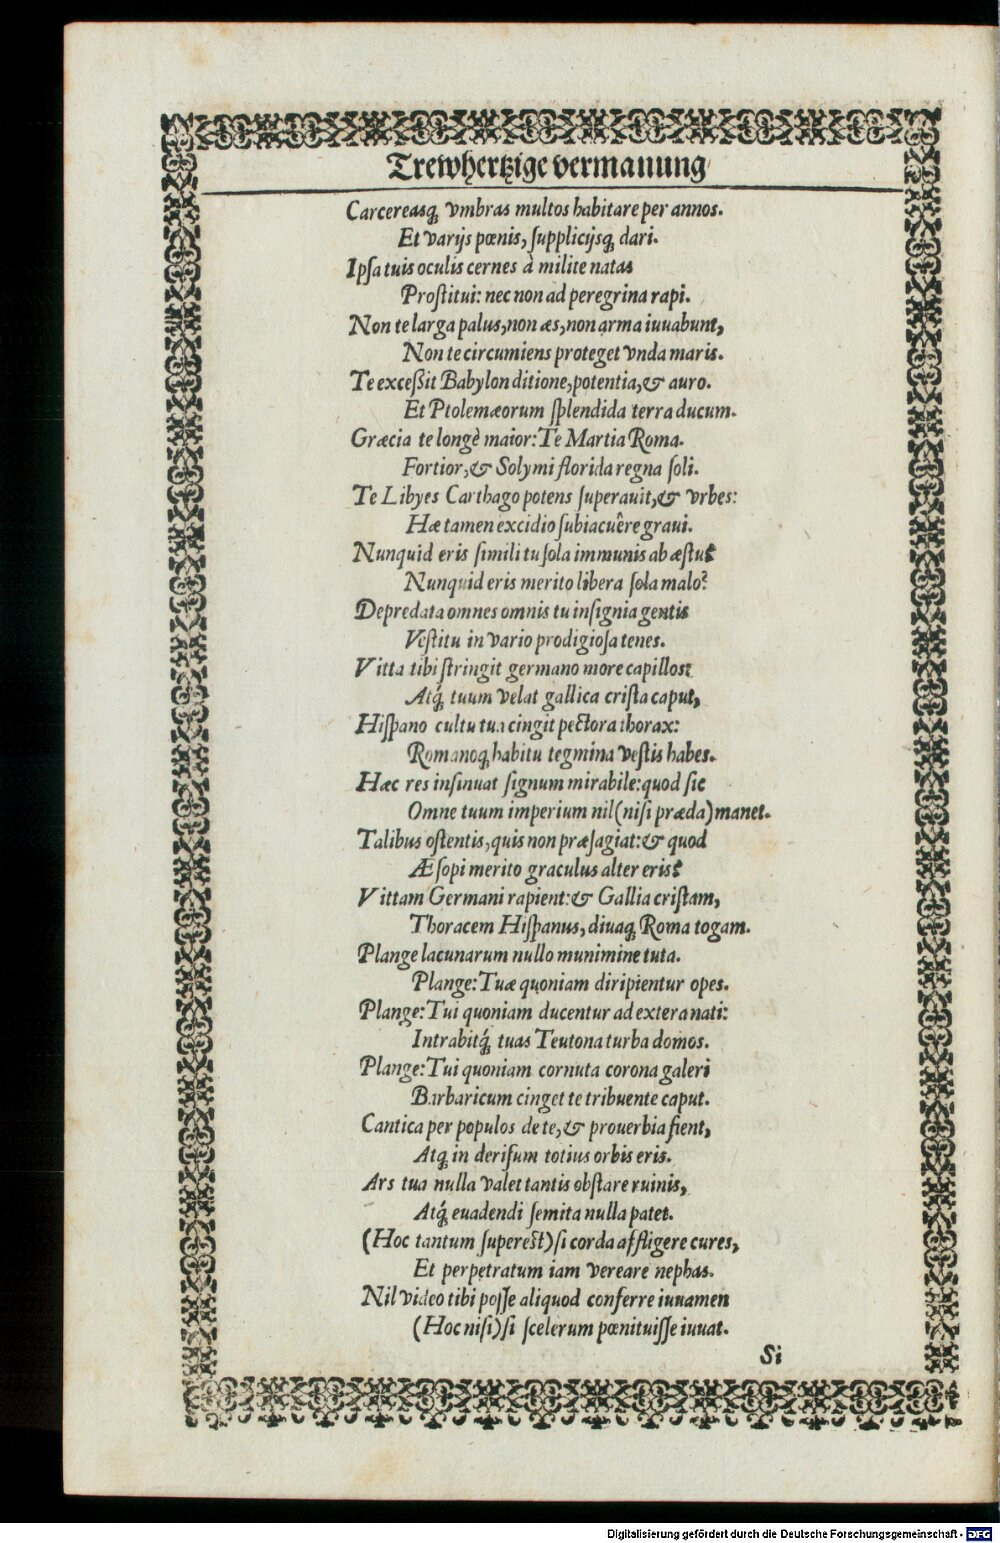 Trewhertzige vermanung
Carcereasq́; vmbras multos habitare per annos.
Et varijs pœnis, ſupplicijsq́; dari.
Ipſa tuis oculis cernes à milite natas
Proſtitui: nec non ad peregrina rapi.
Non te larga palus, non æs, non arma iuuabunt,
Non te circumiens proteget vnda maris.
Te exceßit Babylon ditione, potentia, & auro.
Et Ptolemæorum ſplendida terra ducum.
Græcia te longè maior: Te Martia Roma.
Fortior, & Solymi florida regna ſoli.
Te Libyes Carthago potens ſuperauit, & vrbes:
Hæ tamen excidio ſubiacuêre graui.
Nunquid eris ſimili tu ſola immunis ab æſtu?
Nunquid eris merito libera ſola malo?
Depredata omnes omnis tu inſignia gentis
Veſtitu in vario prodigioſa tenes.
Vitta tibi ſtringit germano more capillos:
Atq́; tuum velat gallica criſta caput,
Hiſpano cultu tua cingit pectora thorax:
Romanoq́; habitu tegmina veſtis habes.
Hæc res inſinuat ſignum mirabile: quod ſic
Omne tuum imperium nil (niſi præda) manet.
Talibus oſtentis, quis non præſagiat: & quod
Æſopi merito graculus alter eris?
Vittam Germani rapient: & Gallia criſtam,
Thoracem Hiſpanus, diuaq́; Roma togam.
Plange lacunarum nullo munimine tuta.
Plange: Tuæ quoniam diripientur opes.
Plange: Tui quoniam ducentur ad extera nati:
Intrabitq́; tuas Teutona turba domos.
Plange: Tui quoniam cornuta corona galeri
Barbaricum cinget te tribuente caput.
Cantica per populos de te, & prouerbia fient,
Atq́; in deriſum totius orbis eris.
Ars tua nulla valet tantis obſtare ruinis,
Atq́; euadendi ſemita nulla patet.
(Hoc tantum ſupereſt) ſi corda affligere cures,
Et perpetratum iam vereare nephas.
Nil video tibi poſſe aliquod conferre iuuamen
(Hoc niſi) ſi ſcelerum pœnituiſſe iuuat.
Si
Digitalisierung gefördert durch die Deutsche Forschungsgemeinschaft - DFG